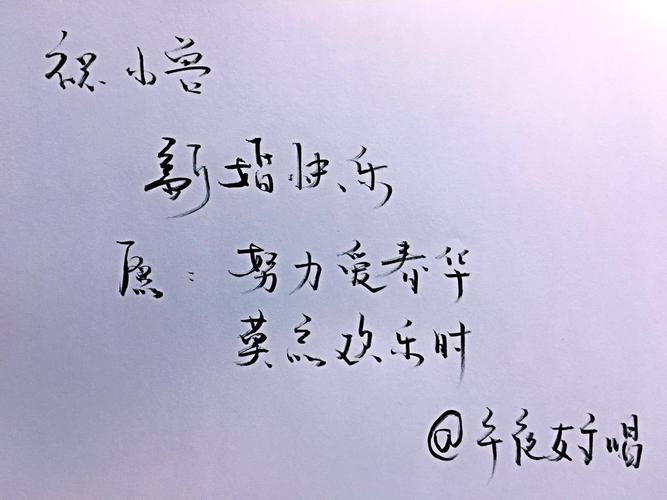 祝小兽
新婚快乐
愿：努力爱春华
莫忘欢乐时
@午夜好唱